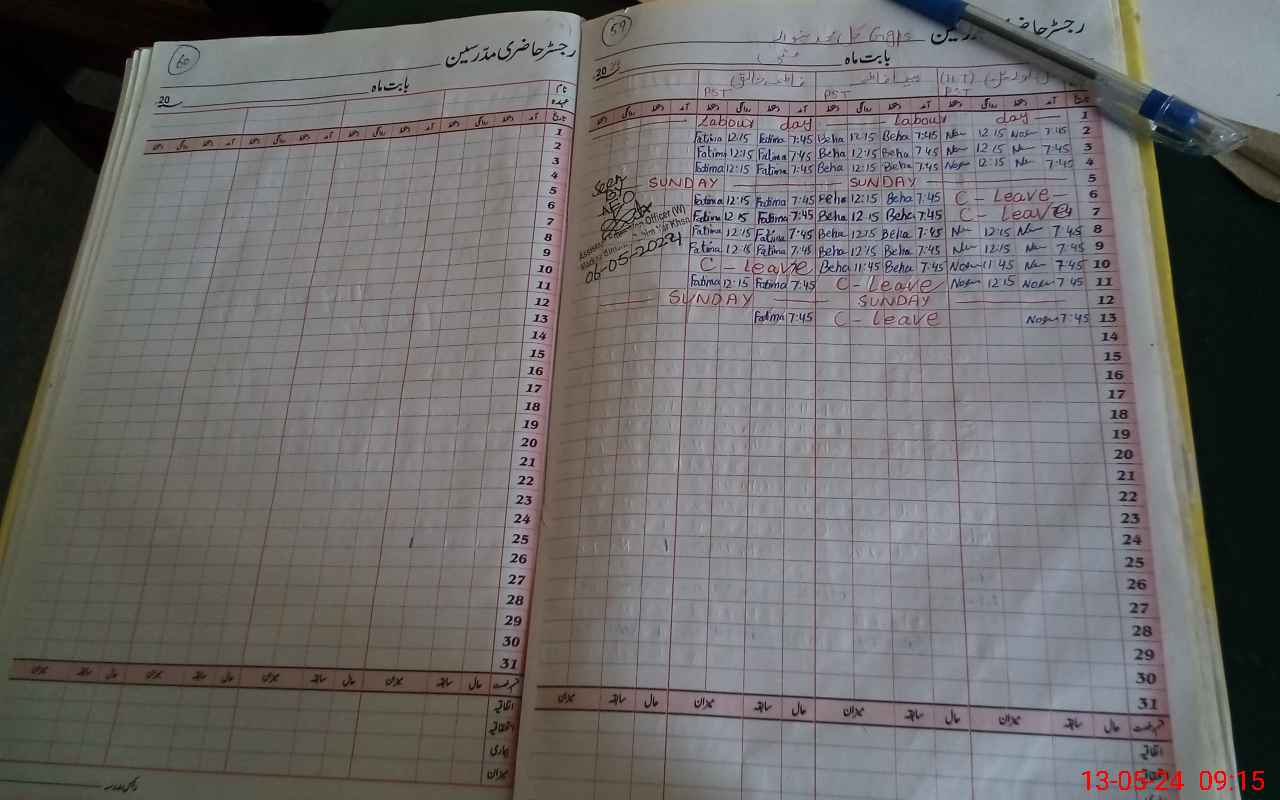 60
رجسٹر حاضری مدرسین
بابت ماہ
20
نام
عہدہ
تاریخ آمد دستخط روانگی دستخط آمد دستخط روانگی دستخط آمد دستخط روانگی دستخط آمد دستخط روانگی دستخط
1
2
3
4
5
6
7
8
9
10
11
12
13
14
15
16
17
18
19
20
21
22
23
24
25
26
27
28
29
30
31
قسم رخصت حال سابقہ میزان حال سابقہ میزان حال سابقہ میزان حال سابقہ میزان
اتفاقیہ
استحقاقیہ
بیماری
میزان
59
رجسٹر حاضری مدرسین
GGPS
بابت ماہ
20
PST PST PST
تاریخ آمد دستخط روانگی دستخط آمد دستخط روانگی دستخط آمد دستخط روانگی دستخط آمد دستخط روانگی دستخط
Labour day Labour day 1
Fatima 12:15 Fatima 7:45 Beha 12:15 Beha 7:45 12:15 7:45 2
Fatima 12:15 Fatima 7:45 Beha 12:15 Beha 7:45 12:15 7:45 3
Fatima 12:15 Fatima 7:45 Beha 12:15 Beha 7:45 12:15 7:45 4
SUNDAY SUNDAY 5
Fatima 12:15 Fatima 7:45 Beha 12:15 Beha 7:45 C - Leave 6
Fatima 12:15 Fatima 7:45 Beha 12:15 Beha 7:45 C - Leave 7
Fatima 12:15 Fatima 7:45 Beha 12:15 Beha 7:45 12:15 7:45 8
Fatima 12:15 Fatima 7:45 Beha 12:15 Beha 7:45 12:15 7:45 9
C - Leave Beha 11:45 Beha 7:45 11:45 7:45 10
Fatima 12:15 Fatima 7:45 C - Leave 12:15 7:45 11
SUNDAY SUNDAY 12
Fatima 7:45 C - Leave 7:45 13
14
15
16
17
18
19
20
21
22
23
24
25
26
27
28
29
30
31
Seen
By
AEO
Officer (W)
Khan
06-05-2024
قسم رخصت حال سابقہ میزان حال سابقہ میزان حال سابقہ میزان حال سابقہ میزان
اتفاقیہ
استحقاقیہ
13-05-24 09:15